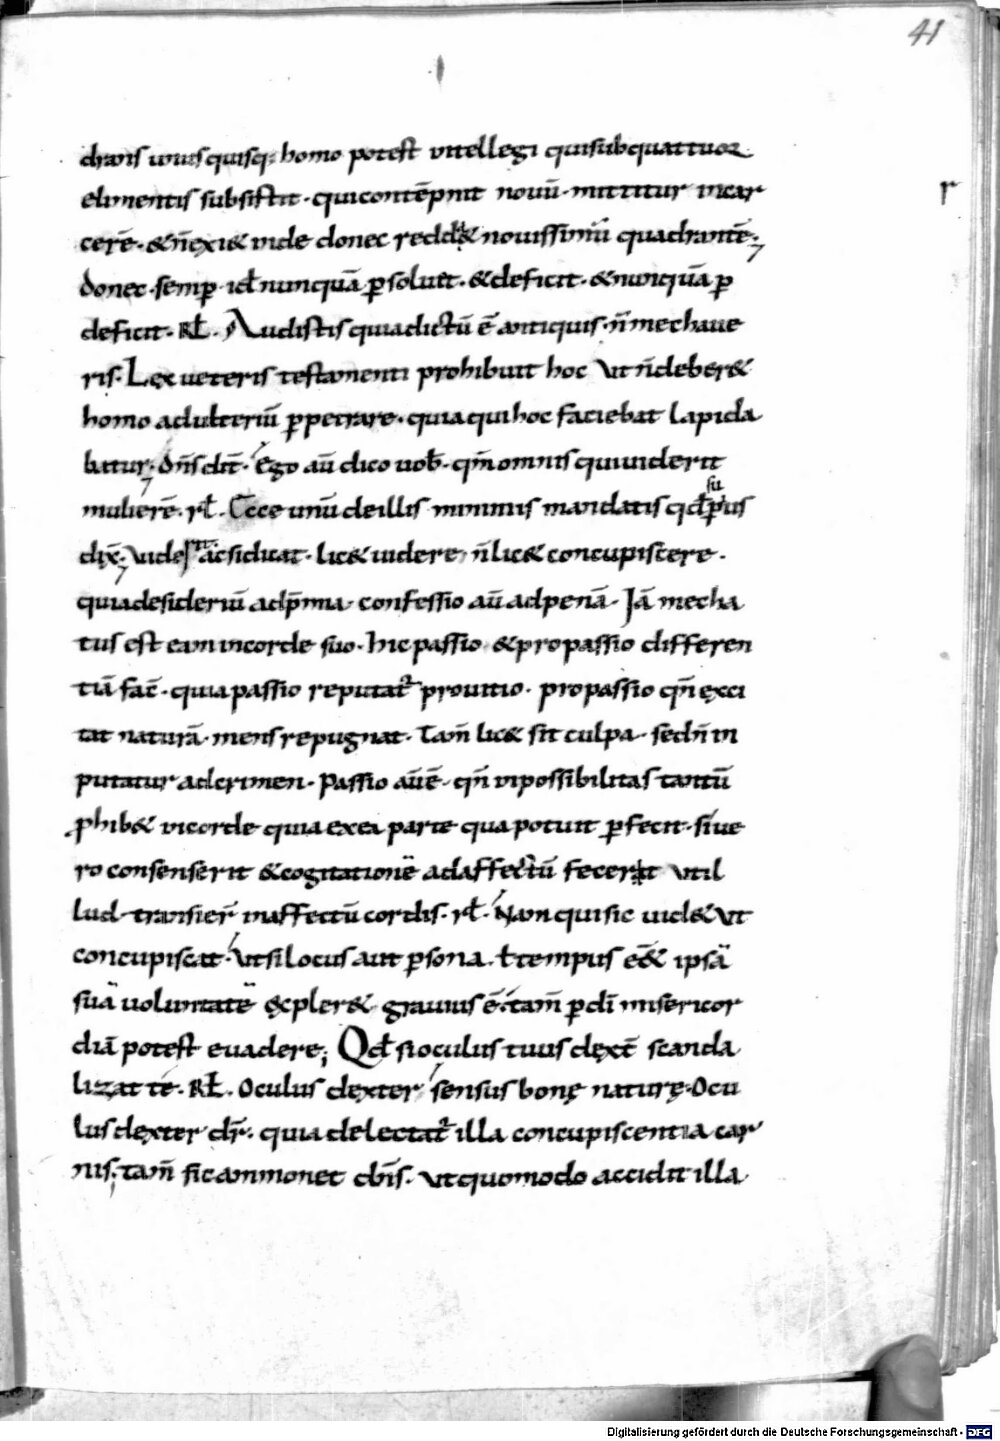 41
drans unusquisq; homo potest intellegi quisubquattuor
elimentis subsistit · quicontēpnit nouū · mittitur incar
r
cerē · & n̄ exi& inde donec redd& nouissimū quadrantē ·
donec · semp · id nunquā psoluit · & deficit · & nunquā p
deficit · RŁ · Audistis quia dictū ē antiquis · n̄ mechaue
ris · Lex ueteris testamenti prohibuit hoc ut n̄ deber&
homo adulteriū ppetrare · quia qui hoc faciebat lapida
batur · dn̄s dit̄ · Ego aū dico uob̄ · qm̄ omnis qui uiderit
su
mulierē · rł · Ecce unū de illis minimis mandatis qd p̄us
dix̄ · uides tāc si dicat · lic& uidere n̄ lic& concupiscere ·
quia desideriū ad p̄mia · confessio aū ad penā · Jā mecha
tus est eam in corde suo · hic passio & propassio differen
tiā fac̄ · quia passio reputat̄ pro uitio · propassio qm̄ exci
tat naturā · mens repugnat · Tam̄ lic& sit culpa · sed n̄ in
putatur ad crimen · passio aū ē · qm̄ inpossibilitas tantū
phib& in corde quia ex ea parte qua potuit pfecit · si ue
ro consenserit & cogitationē ad affectū fecerit ut il
lud transier̄ in affectū cordis · rł · Nam qui sic uid& ut
concupiscat · ut si locus aut psona · ł tempus ē & ipsā
suā uoluntatē expler& grauius ē · tam̄ p dī misericor
diā potest euadere; Qd si oculus tuus dext̄ scanda
lizat te · RŁ · Oculus dexter sensus bonę naturę · Ocu
lus dexter dr̄ · quia delectat̄ illa concupiscentia car
nis · tam̄ sic ammonet dn̄s · ut quomodo accidit illa
Digitalisierung gefördert durch die Deutsche Forschungsgemeinschaft - DFG